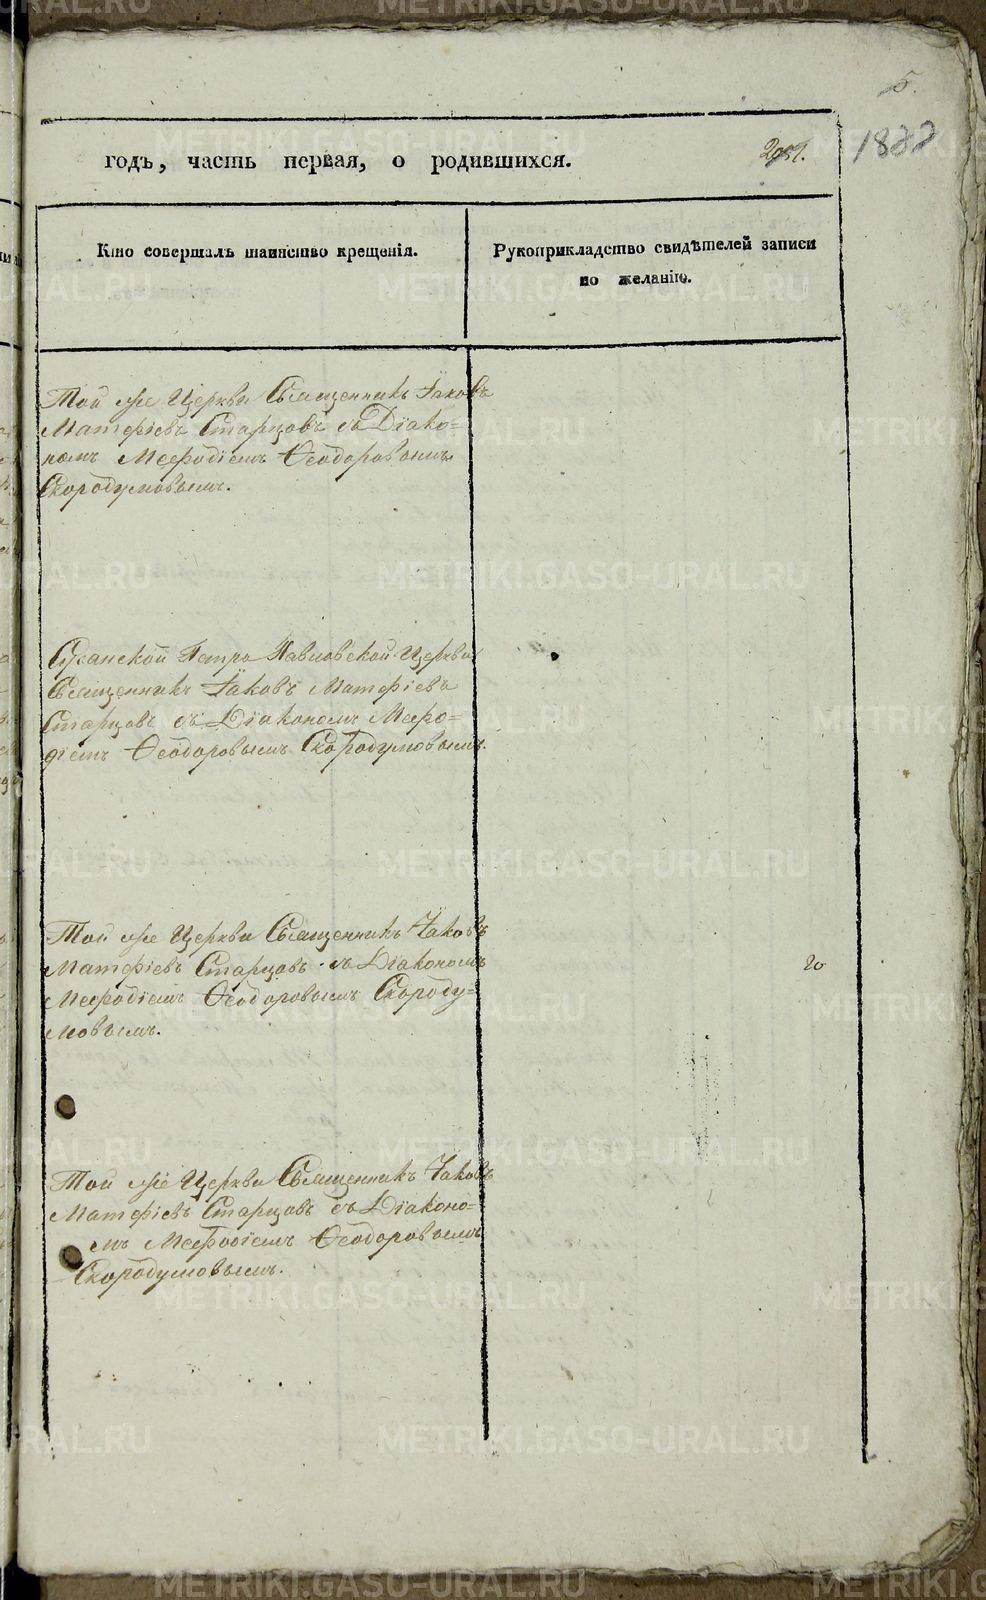 5.
1822
годъ, часть первая, о родившихся.
Кто совершалъ таинство крещенія.
Рукоприкладство свидѣтелей записи
по желанію.
Той же Церкви Священникъ Іаковъ
Матфіевъ Старцовъ съ Діако=
номъ Меѳодіемъ Ѳеодоровымъ
Скородумовымъ.
Петро Павловской Церкви
Священникъ Іаковъ Матфіевъ
Старцовъ съ Діакономъ Меѳо=
діемъ Ѳеодоровымъ Скородумовымъ.
Той же Церкви Священникъ Іаковъ
Матфіевъ Старцовъ съ Діакономъ
Меѳодіемъ Ѳеодоровымъ Скороду=
мовымъ.
20
Той же Церкви Священникъ Іаковъ
Матфіевъ Старцовъ съ Діаконо=
мъ Меѳодіемъ Ѳеодоровымъ
Скородумовымъ.
METRIKI.GASO-URAL.RU